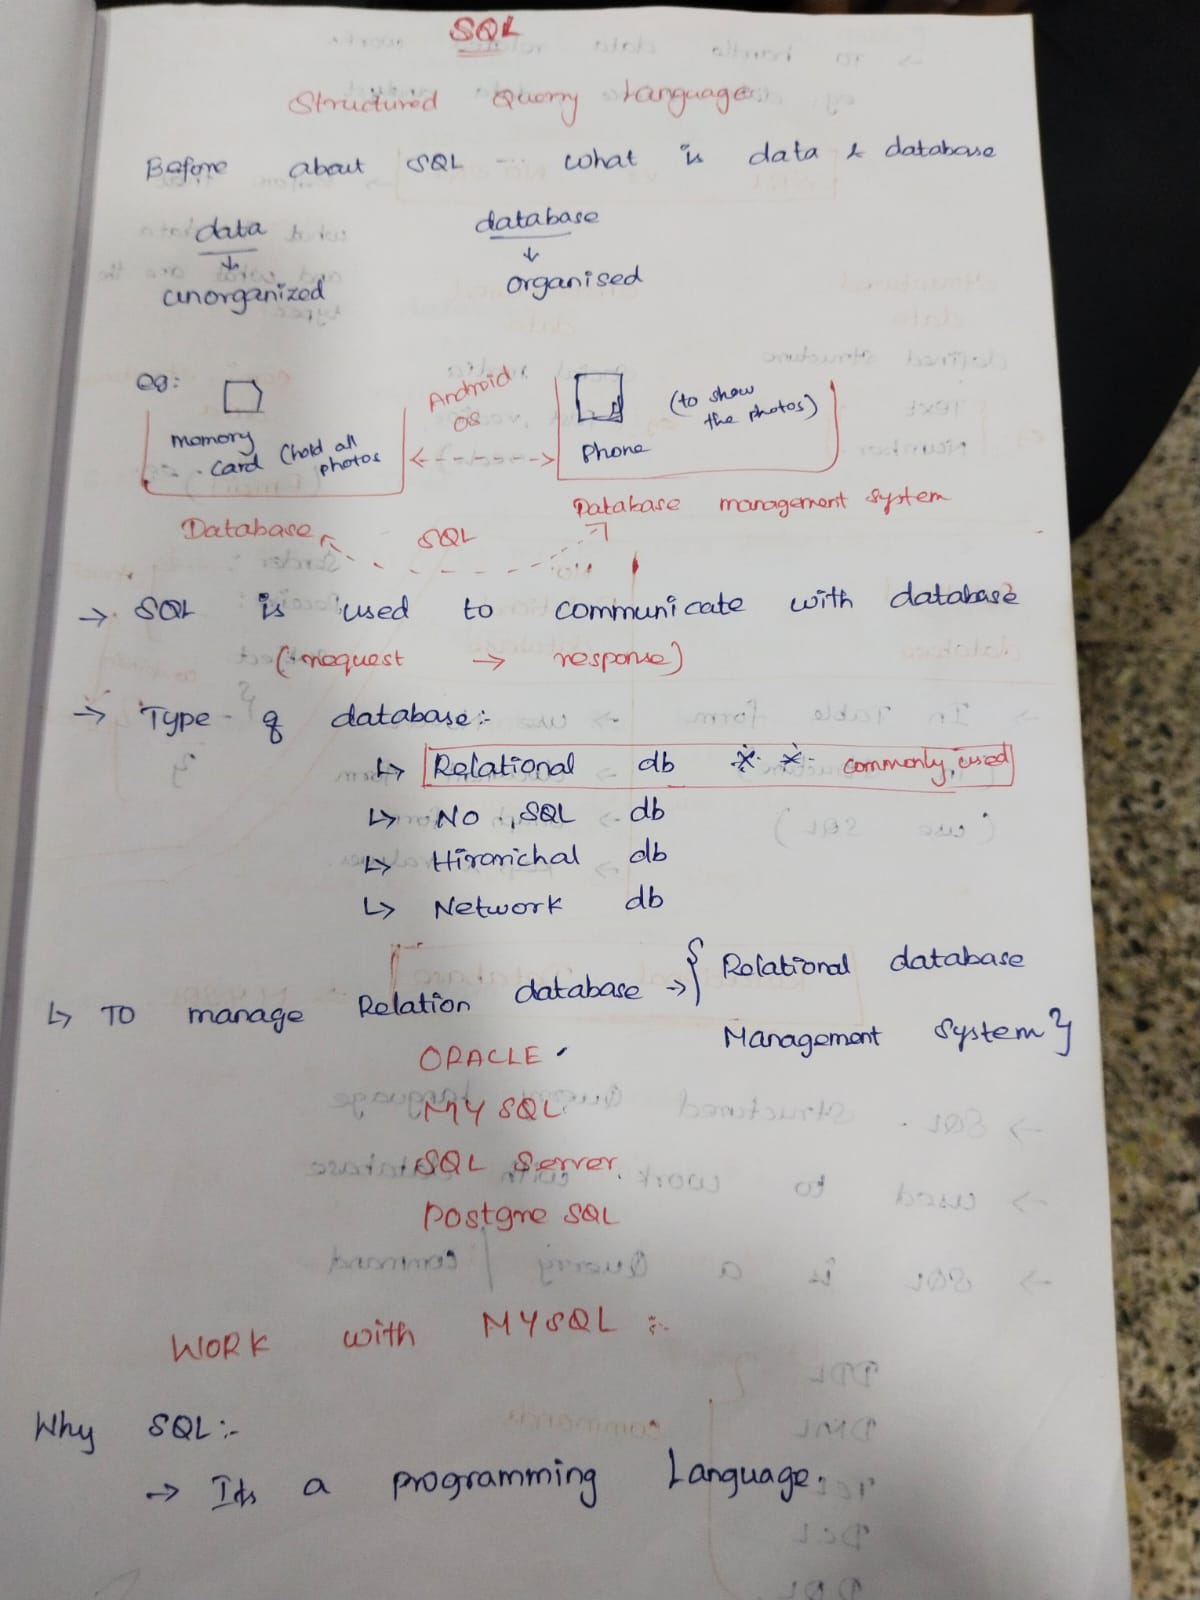 SQL
Structured Querry Language
Before about SQL ... what is data & database
data database
↓ ↓
unorganized organised
eg:
Android OS
memory card (hold all photos
Phone
(to show the photos)
Database SQL Database management system
→ SQL is used to communicate with database
(request → response)
→ Type of database:-
↳ Relational db ** commonly used
↳ No SQL db
↳ Hirarichal db
↳ Network db
↳ TO manage Relation database → { Relational database
Management System }
ORACLE
MY SQL
SQL Server
Postgre SQL
WORK with MYSQL :-
Why SQL:-
→ Its a programming Language.